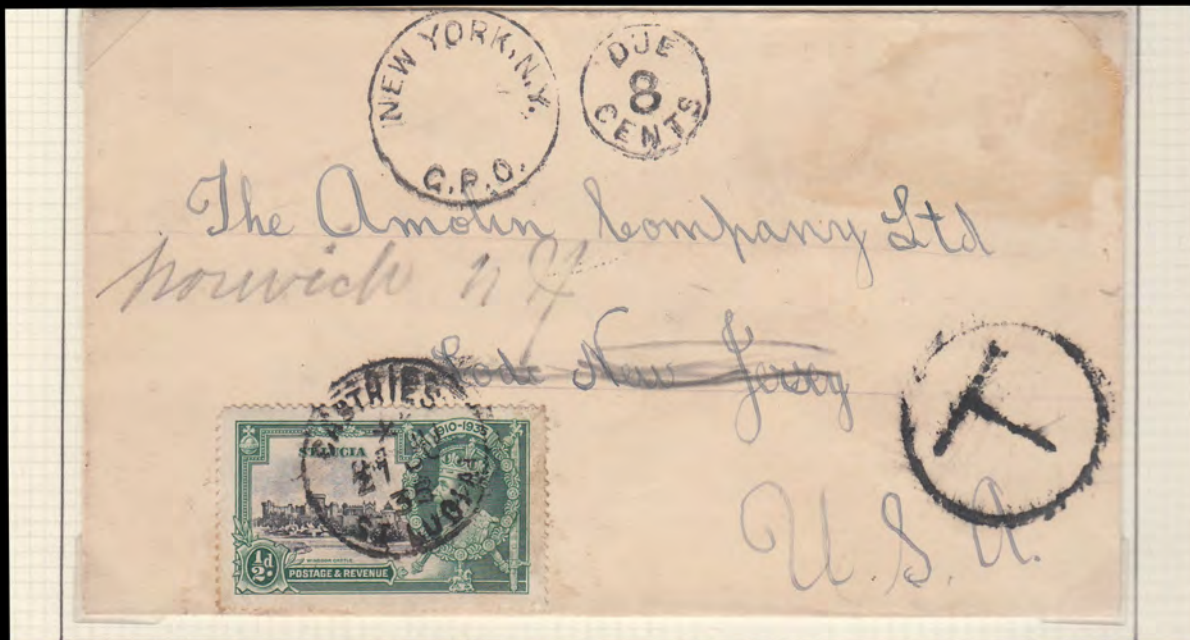 NEW YORK, N.Y.
G.P.O.
DUE
8
CENTS
The Amolin Company Ltd
Norwich N Y
Lodi New Jersey
U.S.A.
T
CASTRIES
27
ST LUCIA
1910-1935
ST LUCIA
WINDSOR CASTLE
½d
POSTAGE & REVENUE